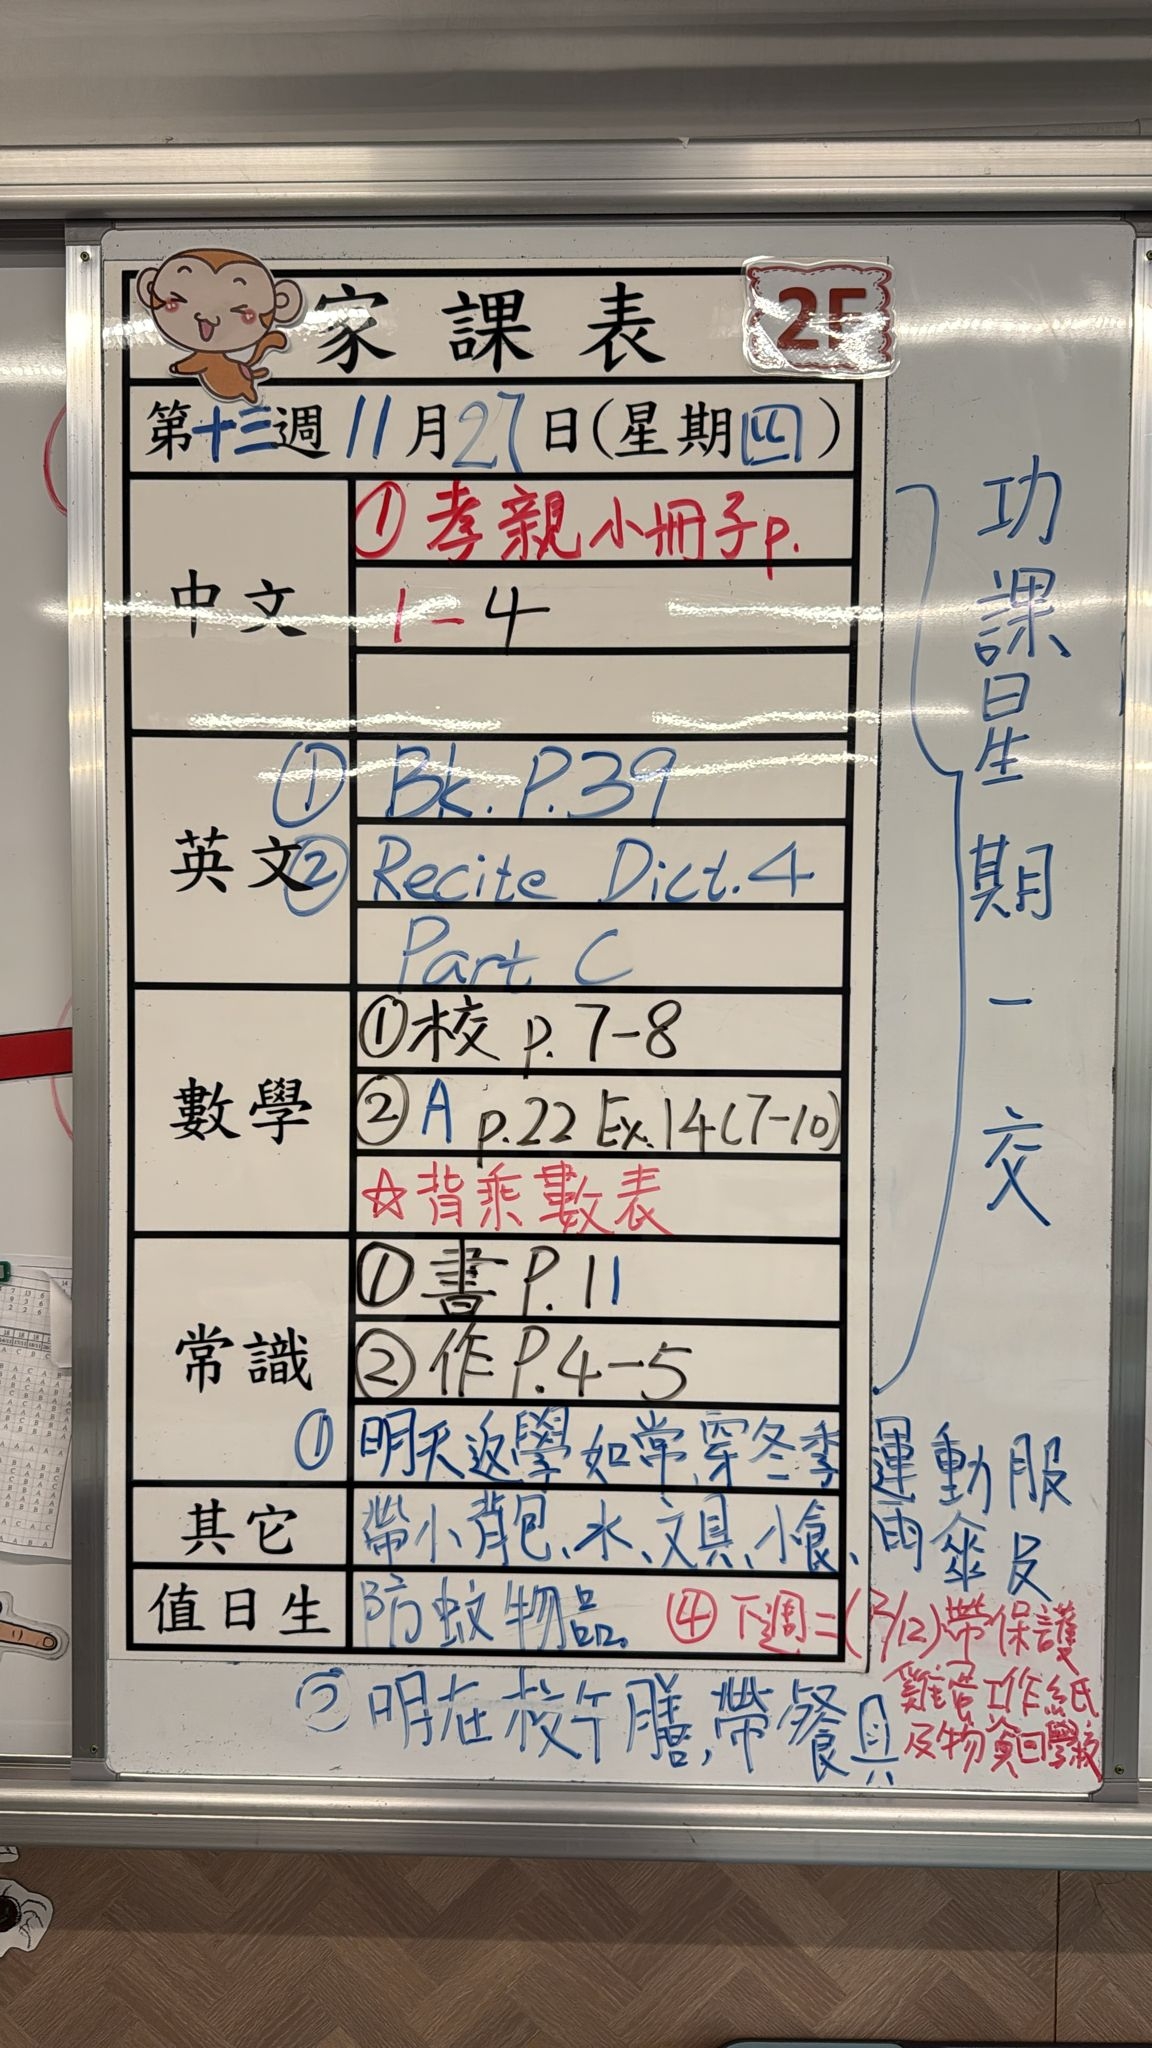 家課表 2F
第十三週 11月27日(星期四)
中文
① 孝親小冊子p.
1-4
英文
① Bk. P.39
② Recite Dict.4
Part C
數學
①校 p.7-8
②A p.22 Ex.14(7-10)
☆背乘數表
常識
①書P.11
②作P.4-5
功課星期一交
① 明天返學如常,穿冬季運動服
其它
帶小背包、水、文具、小食、雨傘及
值日生
防蚊物品。
② 明在校午膳,帶餐具
④ 下週二(2/12)帶保護
雞蛋工作紙
及物資回學校